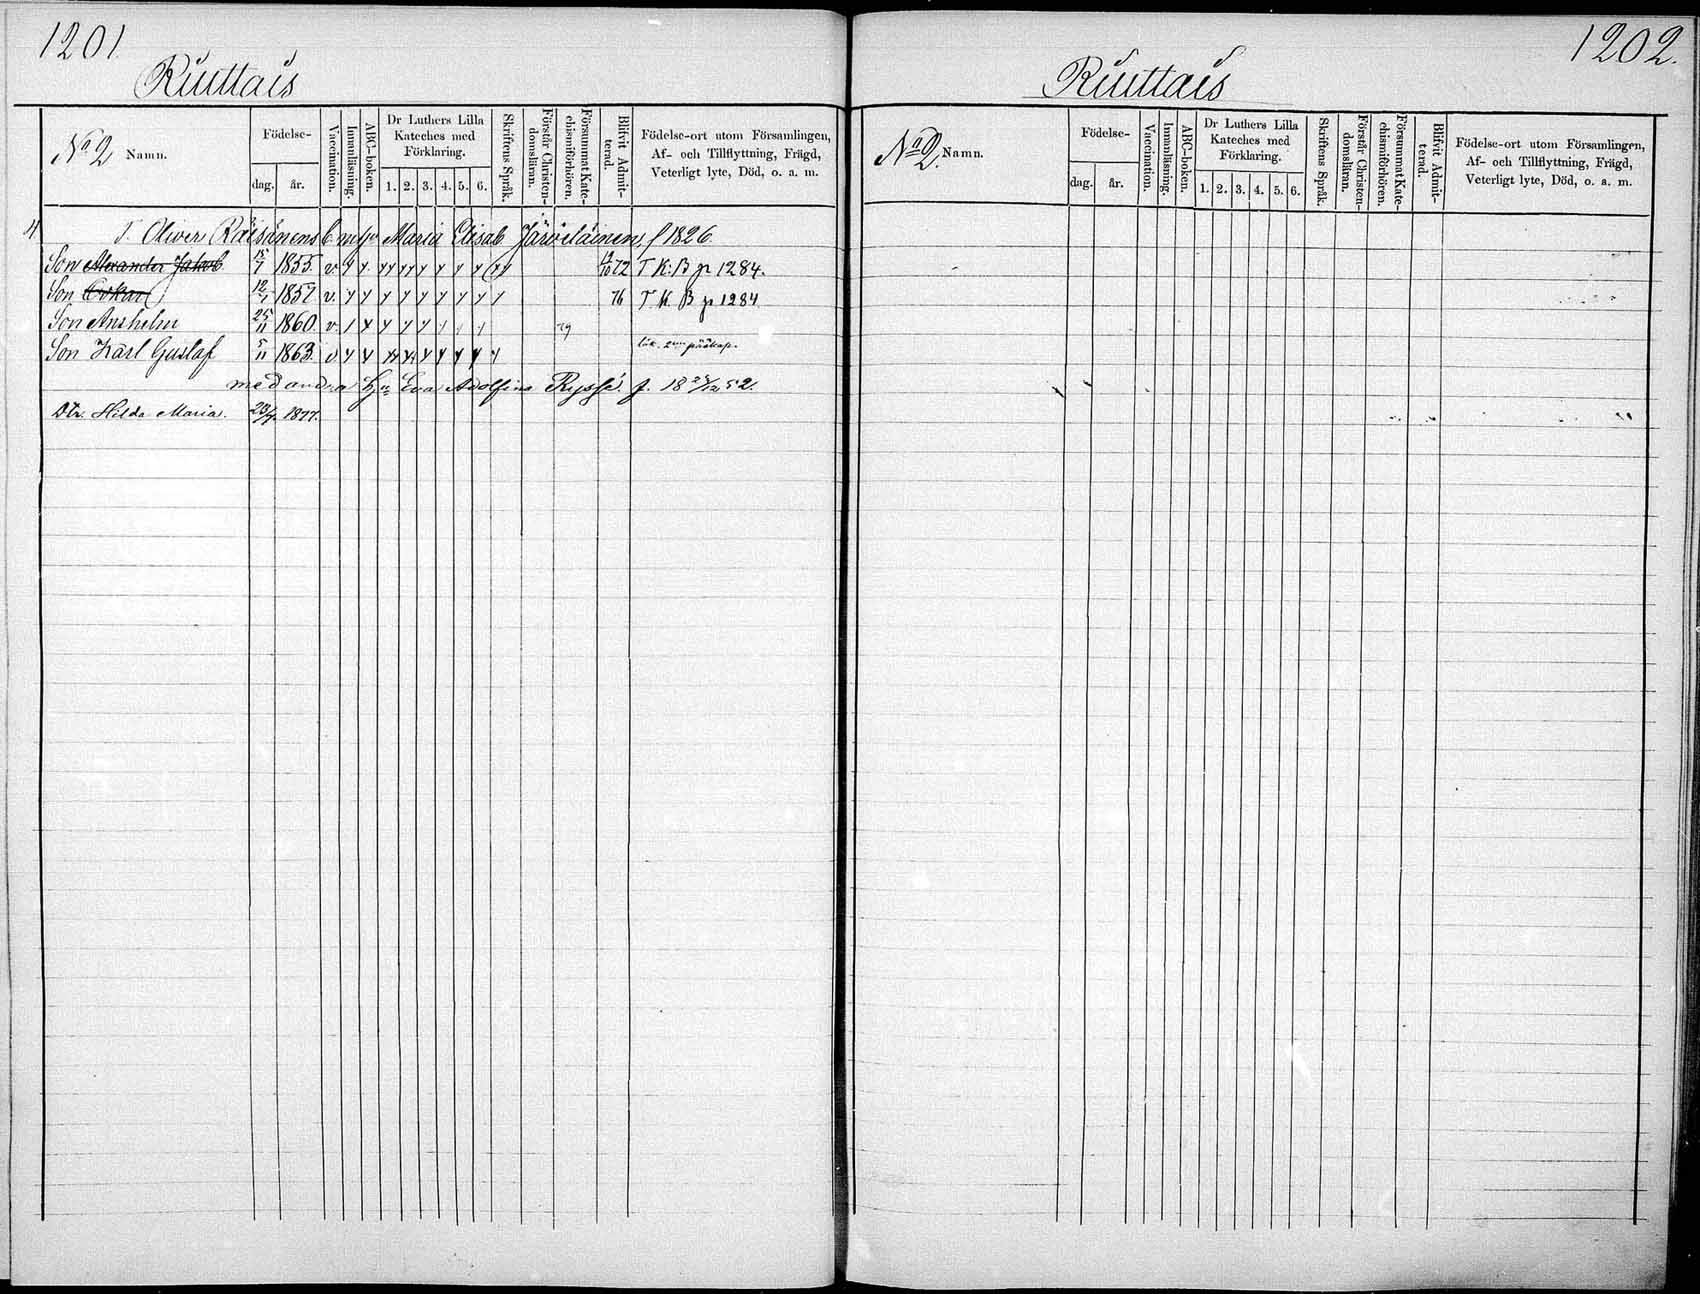 1201.
Ruuttais
No 2 Namn.
Födelse-
dag. år.
Vaccination.
Innanläsning.
ABC-boken.
Dr Luthers Lilla
Kateches med
Förklaring.
1. 2. 3. 4. 5. 6.
Skriftens Språk.
Förstår Christen-
domsläran.
Försummat Kate-
chismiförhören.
Blifvit Admit-
terad.
Födelse-ort utom Församlingen,
Af- och Tillflyttning, Frägd,
Veterligt lyte, Död, o. a. m.
T. Oliver Räisänens b m fr Maria Elisab. Järveläinen, f 1826.
Son Alexander Jakob 15/7 1855. v. 19/10 72 T. K: B p 1284.
Son Oskar 12/1 1857 v. 76 T. K. B p 1284
Son Anshelm 25/11 1860. v. 79
Son Karl Gustaf 5/11 1863. v
med andra Hu Eva Adolfina Ryssä. f. 18 25/12 52.
Dtr. Hilda Maria. 23/7. 1877.
1202.
Ruuttais
No 2. Namn.
Födelse-
dag. år.
Vaccination.
Innanläsning.
ABC-boken.
Dr Luthers Lilla
Kateches med
Förklaring.
1. 2. 3. 4. 5. 6.
Skriftens Språk.
Förstår Christen-
domsläran.
Försummat Kate-
chismiförhören.
Blifvit Admit-
terad.
Födelse-ort utom Församlingen,
Af- och Tillflyttning, Frägd,
Veterligt lyte, Död, o. a. m.